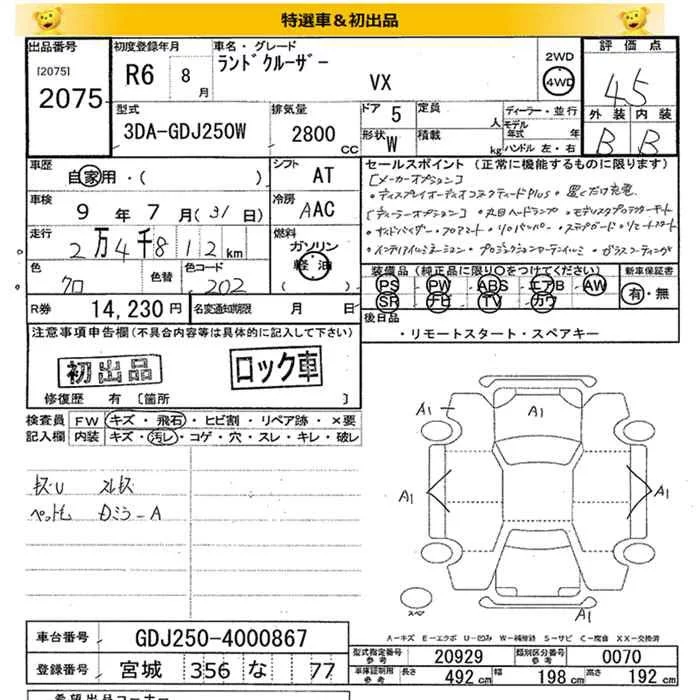 特選車＆初出品
出品番号
[2075]
2075
初度登録年月
R6 8月
車名・グレード
ランドクルーザー
VX
2WD
4WD
評価点
4.5
外装 内装
B B
型式
3DA-GDJ250W
排気量
2800 CC
ドア 5
形状 W
定員 人
積載 kg
ディーラー・並行
モデル年式 年式
ハンドル 左・右
車歴
自家用・( )
シフト
AT
車検
9年7月(31日)
冷房
AAC
走行
2万4千812km
燃料
ガソリン
軽油
色
クロ
色替
色コード
202
R券
14,230円
名変通知期限 月 日
セールスポイント (正常に機能するものに限ります)
[メーカーオプション]
・ディスプレイオーディオコネクティードPlus ・置くだけ充電
[ディーラーオプション]・丸目ヘッドランプ ・モデリスタプロテクターモード
・サイドバイザー・フロアマート・リアバンパー・ステップガード・リモートスタート
・インテリアイルミネーション・プロジェクションカーテシイルミ・ガラスコーティング
装備品 (純正品に限り○をつけてください)
PS PW ABS エアB AW
SR ナビ TV カワ
新車保証書
有・無
後日品
・リモートスタート・スペアキー
注意事項申告欄(不具合内容等は具体的に記入して下さい)
初出品
ロック車
修復歴 有 [箇所 ]
検査員 FW キズ・飛石・ヒビ割・リペア跡・×要
記入欄 内装 キズ・汚レ・コゲ・穴・スレ・キレ・破レ
キズU スレキズ
ペットモ Dミラ-A
A1
A1
A1
A1
A1
スペア
A-キズ E-エクボ U-凹み W-補修跡 S-サビ C-腐食 XX-交換済
車台番号
GDJ250-4000867
登録番号
宮城 356 な 77
型式指定番号 参考
20929
類別区分番号 参考
0070
車体証制用 参考
長さ 492cm 幅 198cm 高さ 192cm
希望出品コーナー